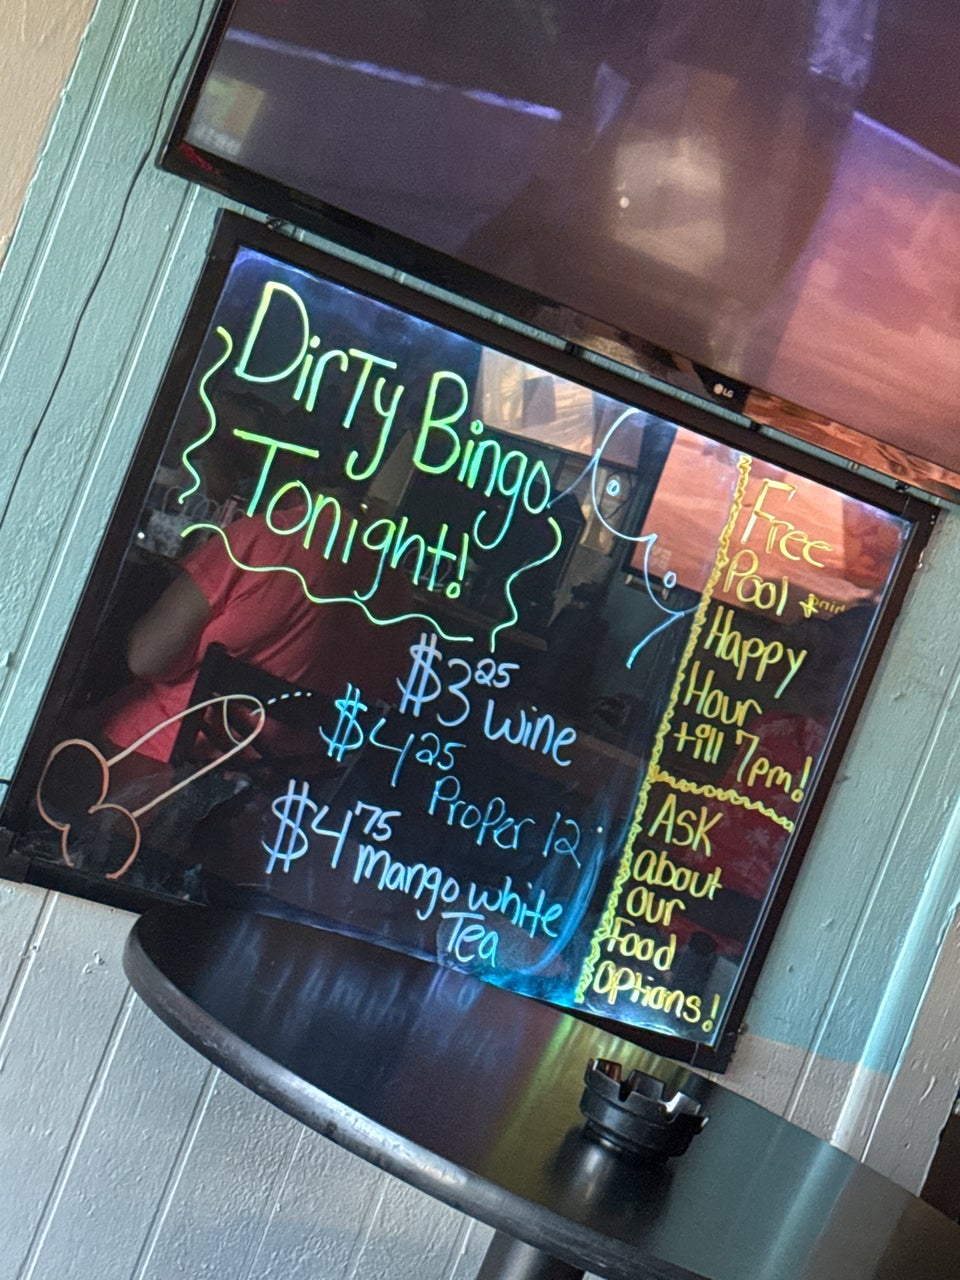 LG
Dirty Bingo
Tonight!
$3.25 wine
$4.25
Proper 12
$4.75 mango white
Tea
Free
Pool
Happy
Hour
till 7pm!
Ask
about
our
Food
Options!